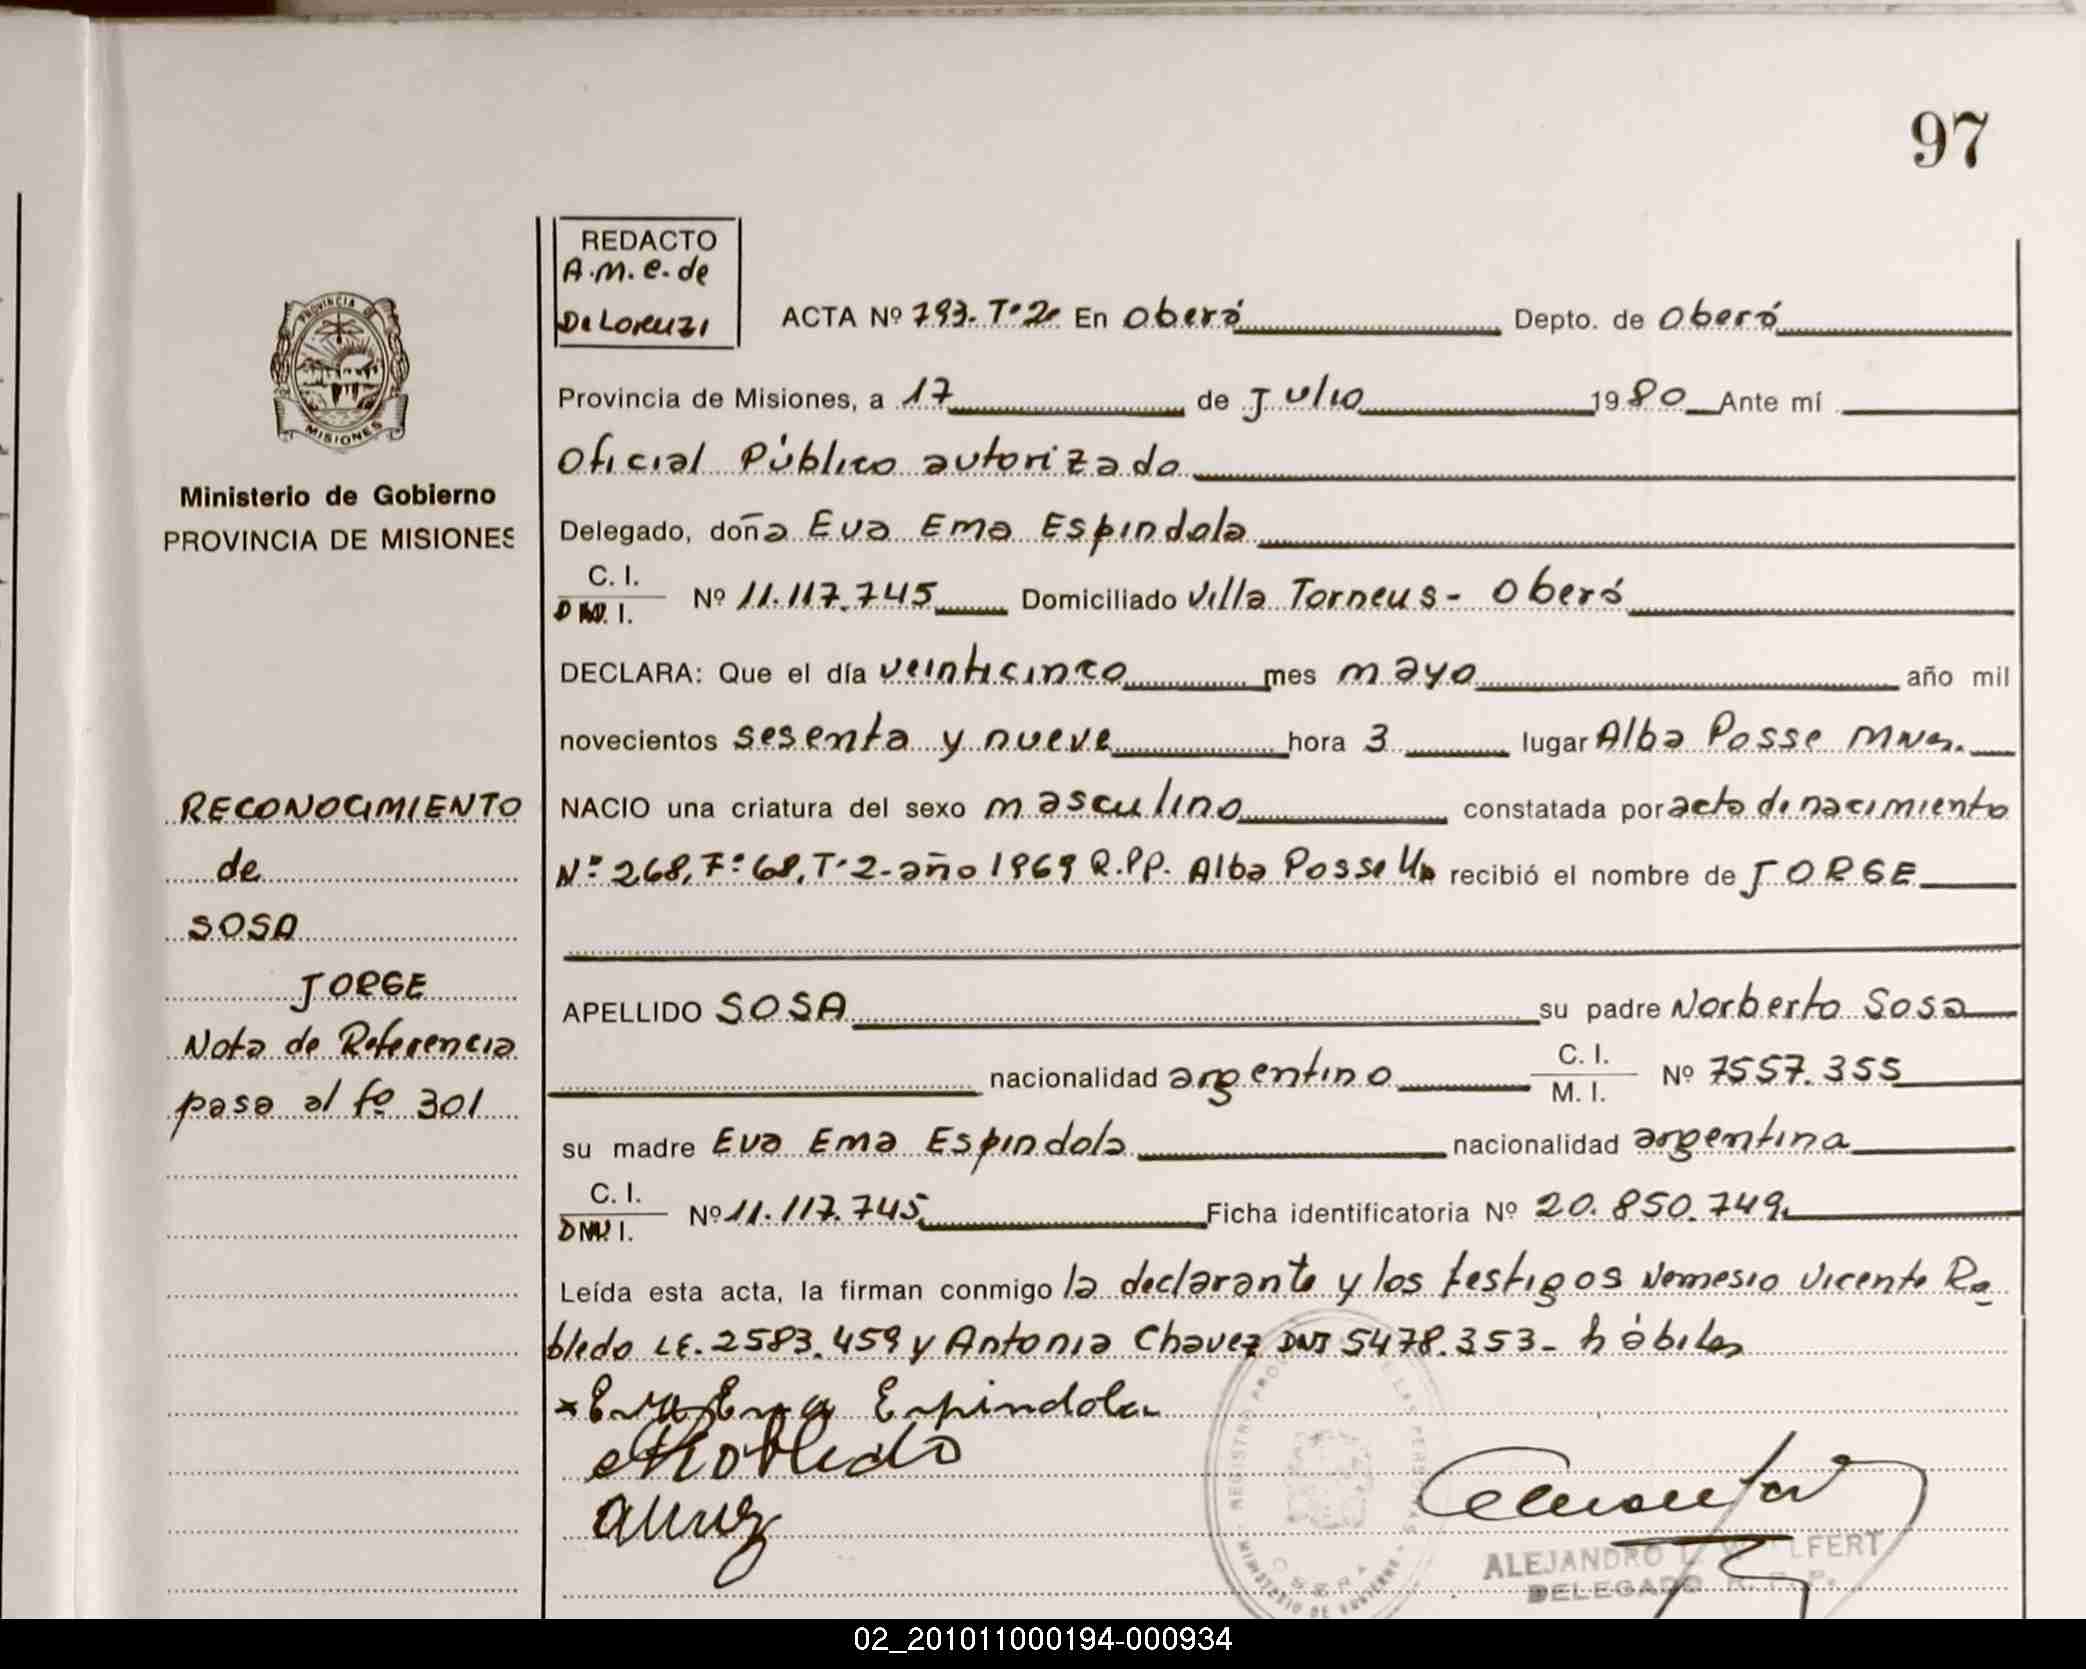 97
REDACTO
A.M.E. de
De Lorenzi
ACTA Nº 793. Tº 2º En Oberá Depto. de Oberá
PROVINCIA
MISIONES
Provincia de Misiones, a 17 de Julio 1980 Ante mí
Oficial Público autorizado
Ministerio de Gobierno
PROVINCIA DE MISIONES
Delegado, doña Eva Ema Espindola
C. I.
DNI. I. Nº 11.117.745 Domiciliado Villa Torneus - Oberá
DECLARA: Que el día veinticinco mes mayo año mil
novecientos sesenta y nueve hora 3 lugar Alba Posse Mnes.
NACIO una criatura del sexo masculino constatada por acta de nacimiento
Nº 268, Fº 68, Tº 2 - año 1969 R.PP. Alba Posse recibió el nombre de JORGE
RECONOCIMIENTO
de
SOSA
JORGE
Nota de Referencia
pasa al fº 301
APELLIDO SOSA su padre Norberto Sosa
nacionalidad argentino C. I. M. I. Nº 7557.355
su madre Eva Ema Espindola nacionalidad argentina
C. I.
DNI. I. Nº 11.117.745 Ficha identificatoria Nº 20.850.749
Leída esta acta, la firman conmigo la declarante y los testigos Nemesio Vicente Ro
bledo LE. 2583.459 y Antonia Chavez DNI 5478.353 - hábiles
x Eva Ema Espindola
Robledo
REGISTRO PRO DE LAS PERSONAS
MINISTERIO DE GOBIERNO
OBERA
ALEJANDRO LFERT
DELEGADO R. P. P.
02_201011000194-000934